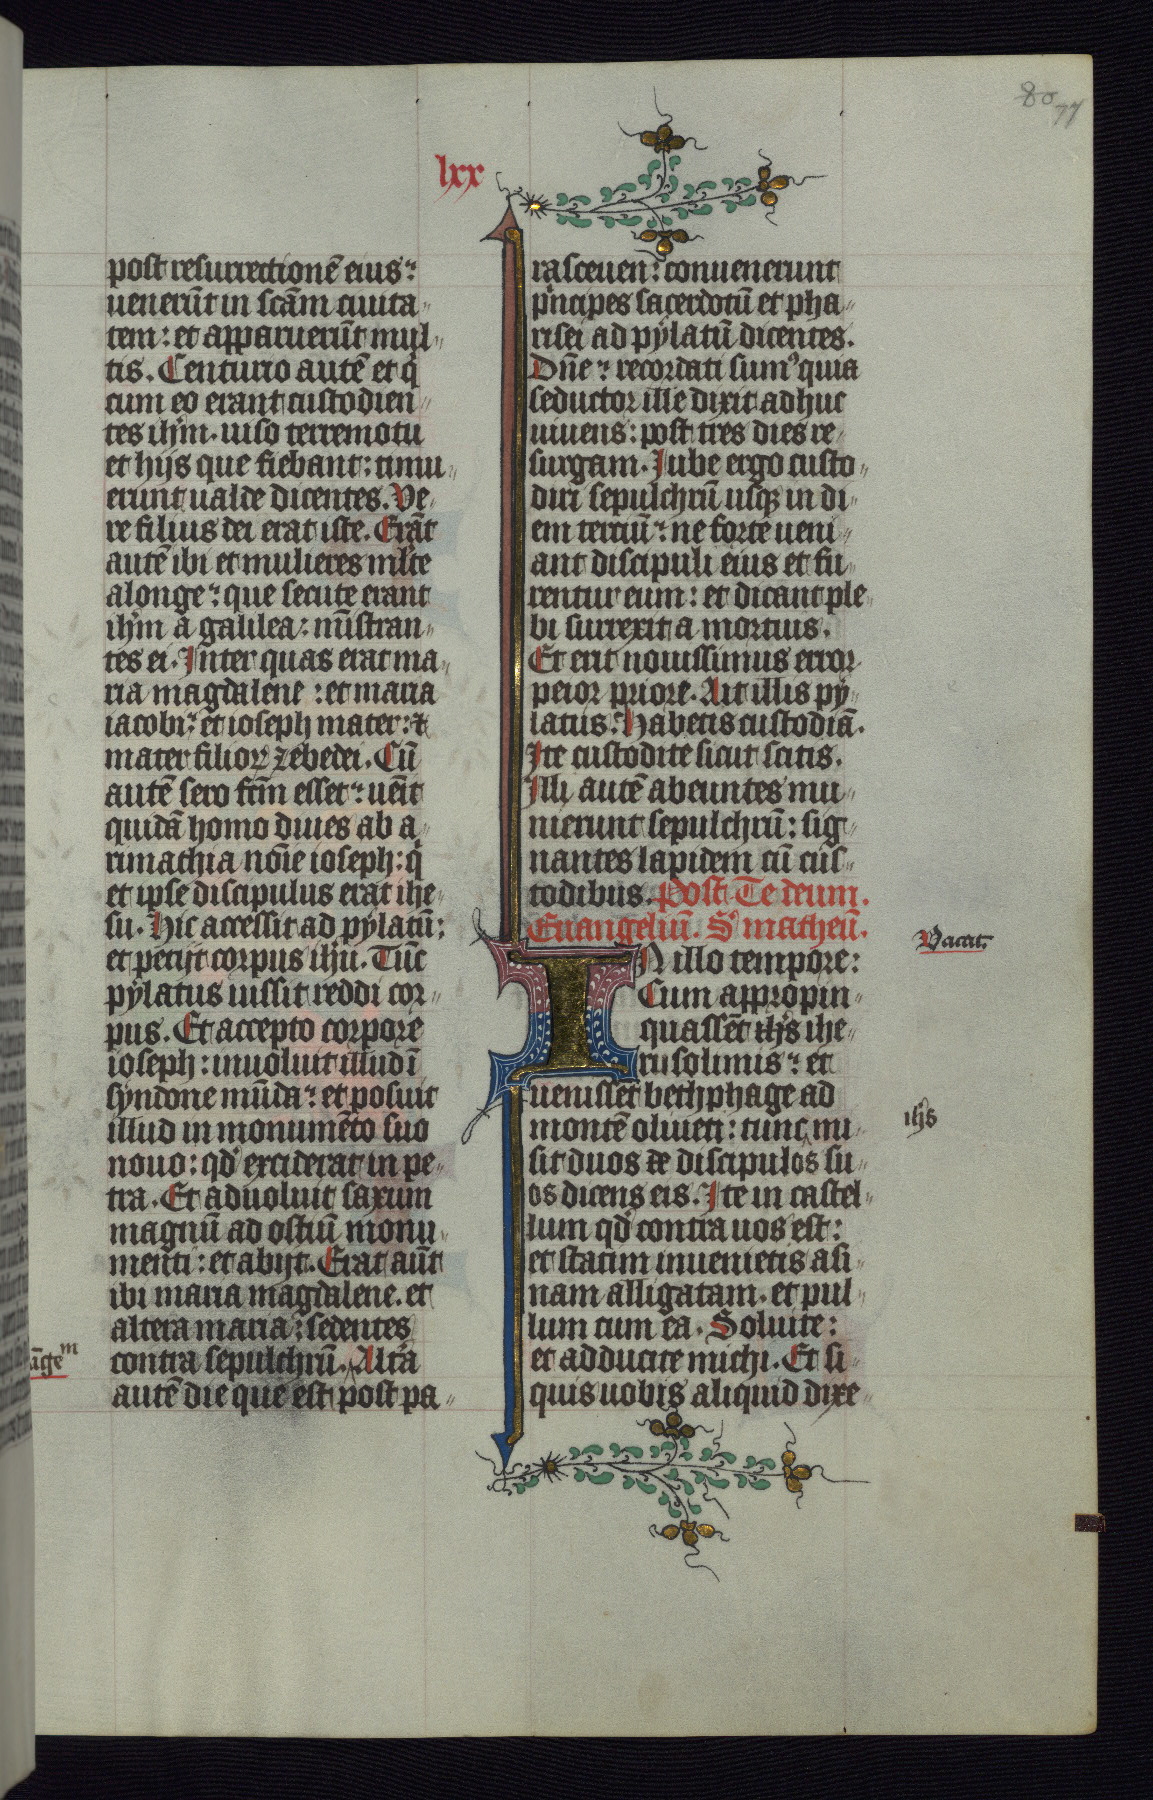 80
77
lxx
post resurrectionē eius:
uenerūt in scām ciuita
tem: et apparuerūt mul
tis. Centurio autē et q
cum eo erant custodien
tes ihm. uiso terremotu
et hijs que fiebant: timu
erunt ualde dicentes. Ve
re filius dei erat iste. Erāt
autē ibi et mulieres mlte
alonge: que secute erant
ihm a galilea: mīstran
tes ei. Inter quas erat ma
ria magdalene: et maria
iacobi: et ioseph mater: et
mater filioꝝ zebedei. Cū
autē sero fcm esset: uēit
quidā homo diues ab a
rimathia noīe ioseph: q
et ipse discipulus erat ihe
su. Hic accessit ad pylatū:
et petijt corpus ihu. Tūc
pylatus iussit reddi cor
pus. Et accepto corpore
ioseph: inuoluit illud ī
syndone mūda: et posuit
illud in monumēto suo
nouo: qd exciderat in pe
tra. Et aduoluit saxum
magnū ad ostiū monu
menti: et abijt. Erat aūt
ibi maria magdalene. et
altera maria: sedentes
contra sepulchrū. Altra
autē die que est post pa
rasceuen: conuenerunt
pncipes sacerdotū et pha
risei ad pylatū dicentes.
Dñe: recordati sumꝰ quia
seductor ille dixit adhuc
uiuens: post tres dies re
surgam. Iube ergo custo
diri sepulchrū usqꝫ in di
em terciū: ne forte ueni
ant discipuli eius et fu
rentur eum: et dicant ple
bi surrexit a mortuis.
Et erit nouissimus error
peior priore. Ait illis py
latus. Habetis custodiā.
Ite custodite sicut scitis.
Illi autē abeuntes mu
nierunt sepulchrū: sig
nantes lapidem cū cus
todibus. Post Te deum.
Euangeliū. S. matheū.
Vacat.
IN illo tempore:
Cum appropin
quassēt ihs ihe
rusolimis: et
uenisset bethphage ad
montē oliueti: tunc mi
ihs
sit duos de discipulos su
os dicens eis. Ite in castel
lum qd contra uos est:
et statim inuenietis asi
nam alligatam. et pul
lum cum ea. Soluite:
et adducite michi. Et si
quis uobis aliquid dixe